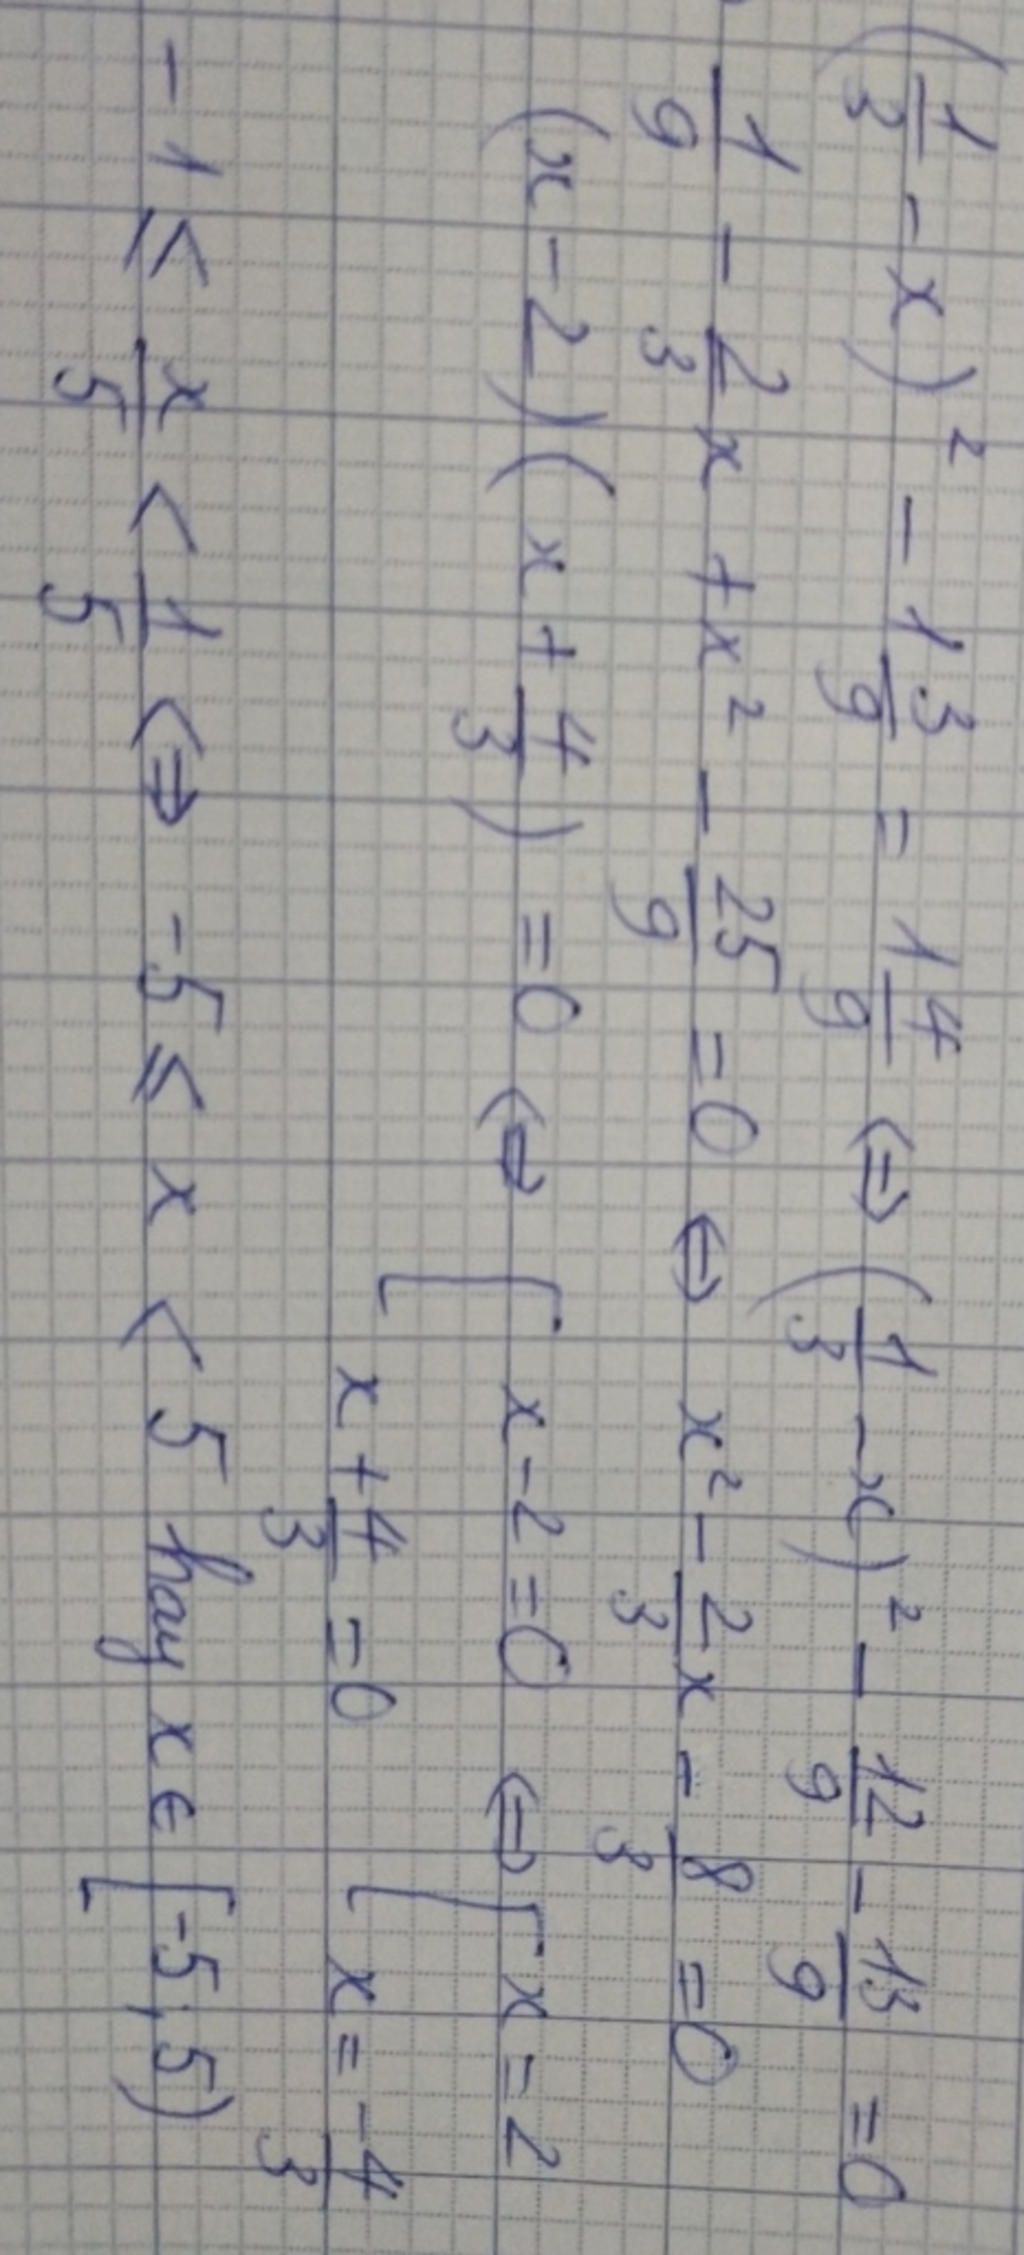 (1/3 - x)² - 1 3/9 = 1 4/9 ⇔ (1/3 - x)² - 12/9 - 13/9 = 0
1/9 - 2/3 x + x² - 25/9 = 0 ⇔ x² - 2/3 x - 8/3 = 0
(x - 2)(x + 4/3) = 0 ⇔ [ x - 2 = 0 ⇔ [ x = 2
x + 4/3 = 0 x = -4/3
-1 ≤ x/5 < 1/5 ⇔ -5 ≤ x < 5 hay x ∈ [-5, 5)